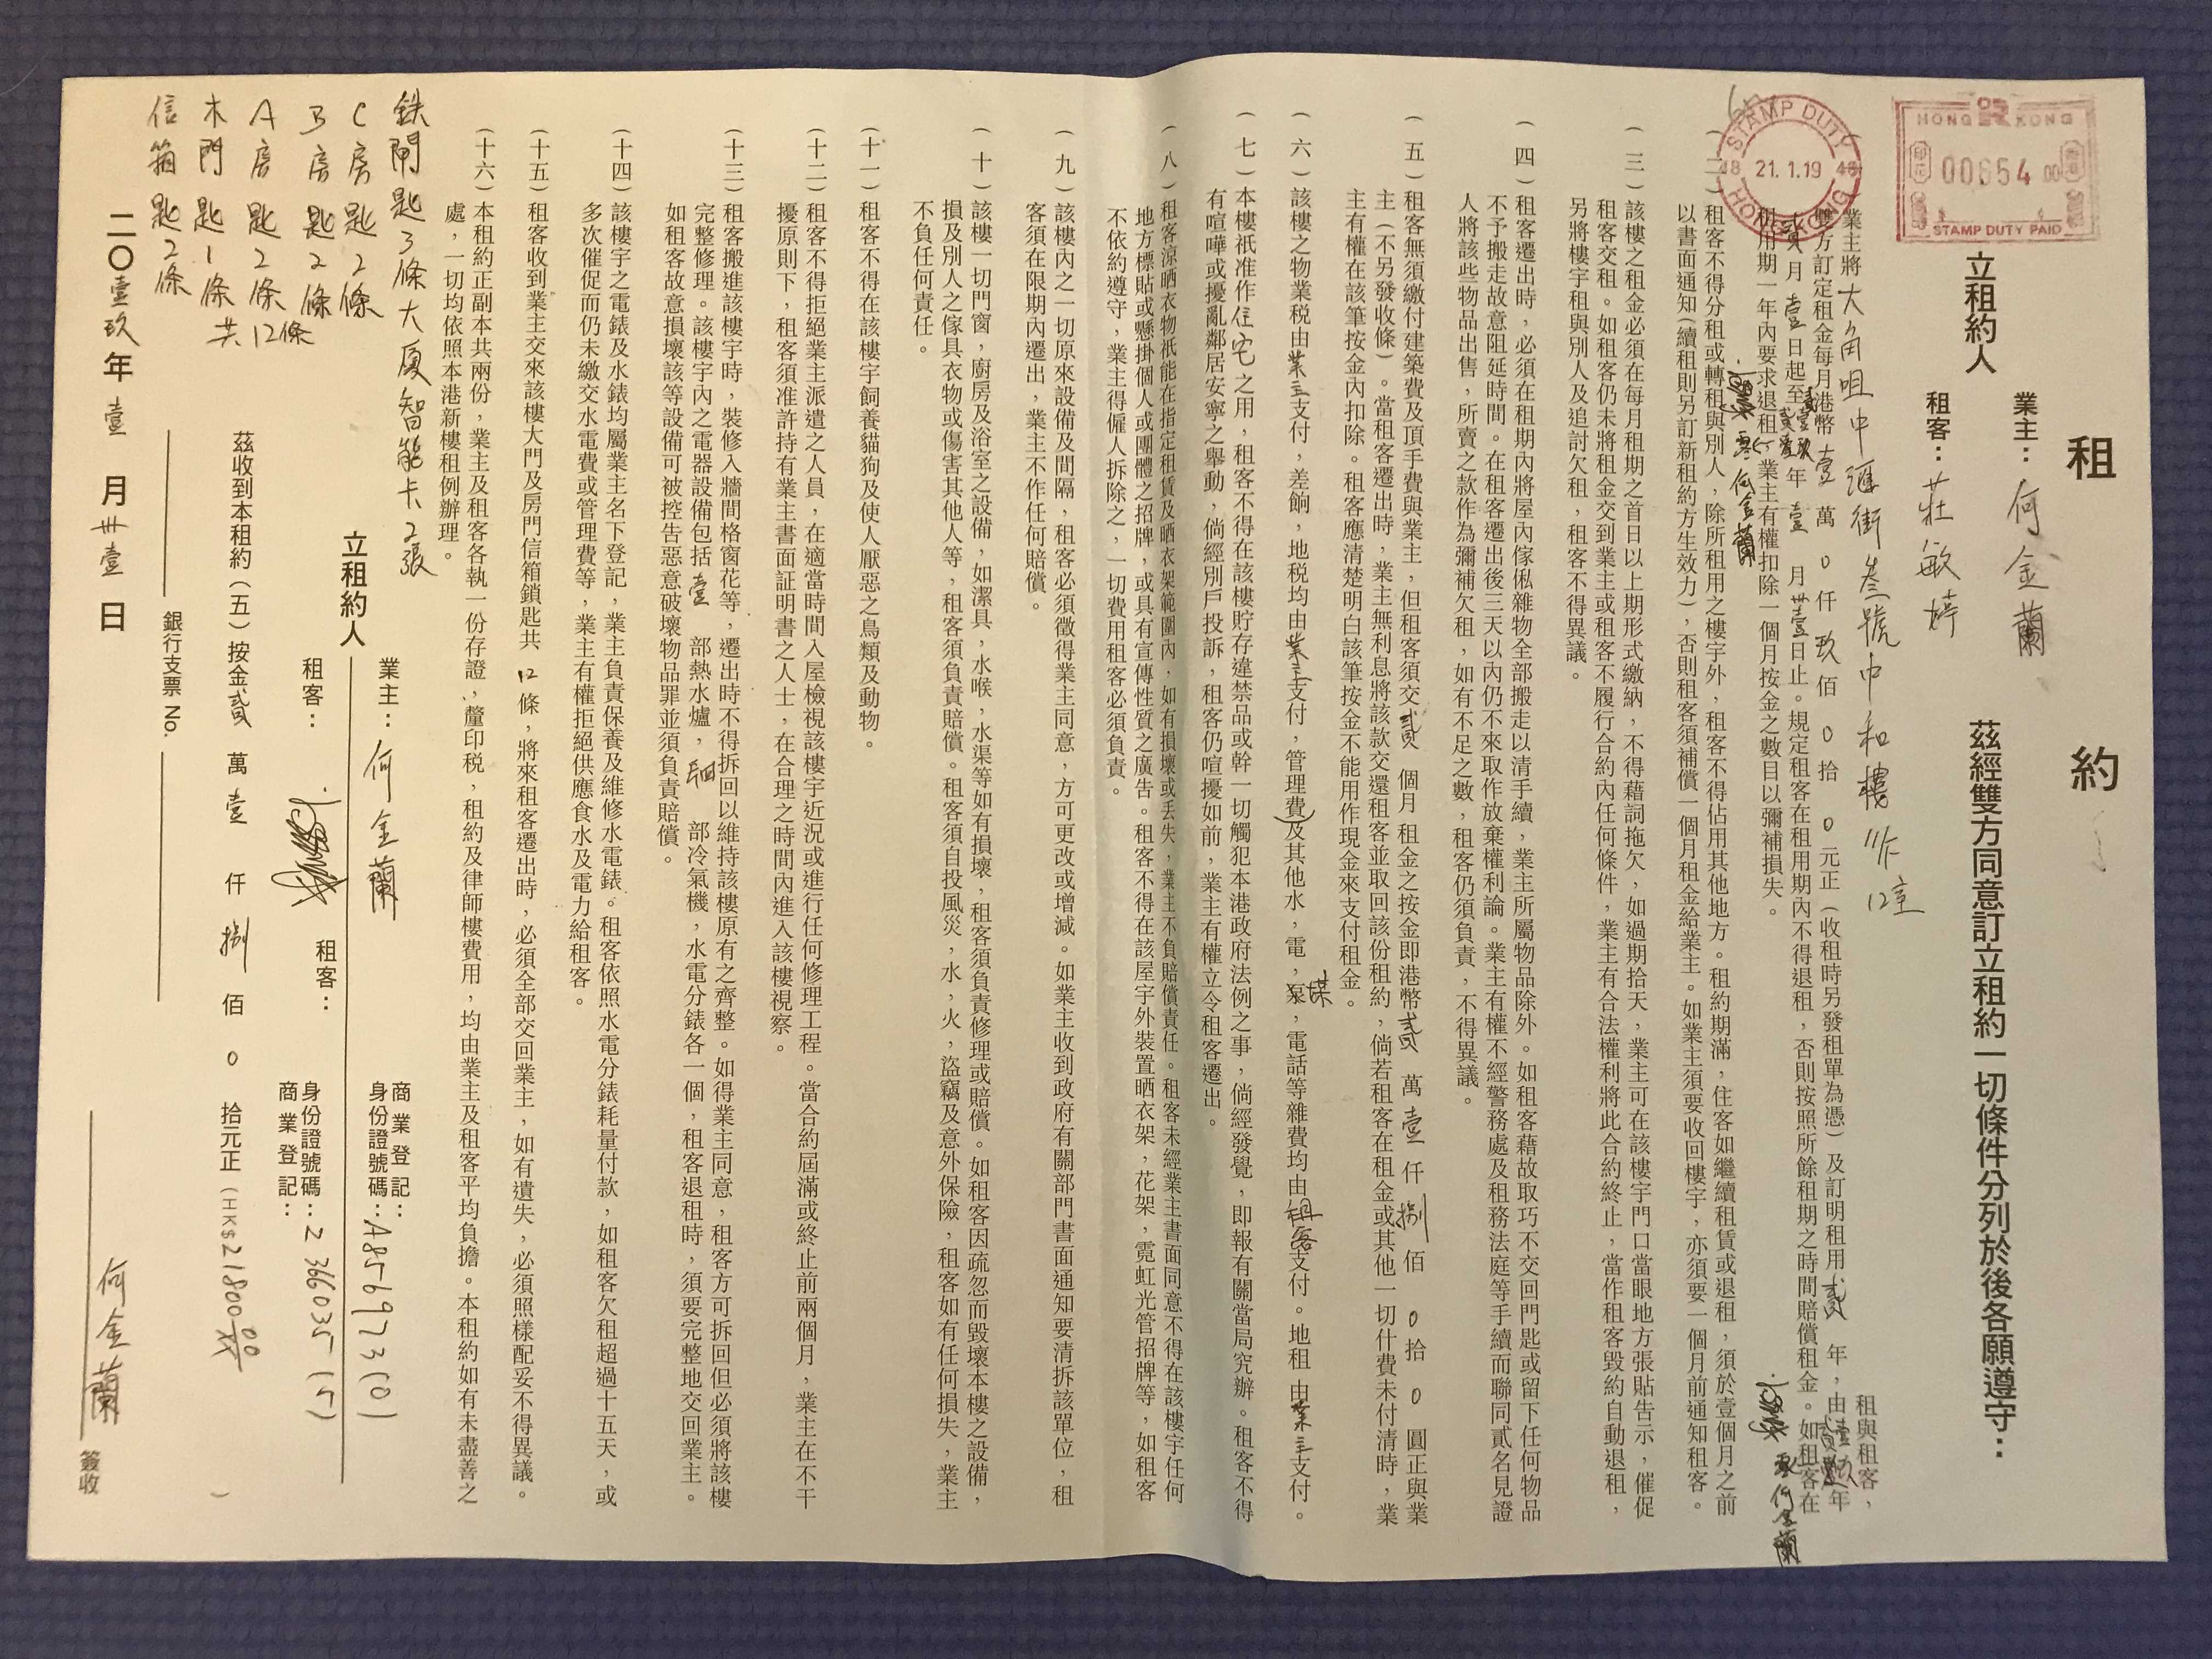 租約
HONG KONG
印花
香港
00654 00
STAMP DUTY PAID
STAMP DUTY
48 21.1.19 48
HONG KONG
立租約人
業主：何金蘭
租客：莊敏婷
茲經雙方同意訂立租約一切條件分列於後各願遵守：
業主將大角咀中匯街叁號中和樓11字12室 租與租客，
雙方訂定租金每月港幣壹萬0仟玖佰0拾0元正（收租時另發租單為憑）及訂明租用貳年，由
年貳月壹日起至 年壹月卅壹日止。規定租客在租用期內不得退租，否則按照所餘租期之時間賠償租金。如租客在
租用期一年內要求退租，業主有權扣除一個月按金之數目以彌補損失。
何金蘭
何金蘭
（二）租客不得分租或轉租與別人，除所租用之樓宇外，租客不得佔用其他地方。租約期滿，住客如繼續租賃或退租，須於壹個月之前
以書面通知（續租則另訂新租約方生效力），否則租客須補償一個月租金給業主。如業主須要收回樓宇，亦須要一個月前通知租客。
（三）該樓之租金必須在每月租期之首日以上期形式繳納，不得藉詞拖欠，如過期拾天，業主可在該樓宇門口當眼地方張貼告示，催促
租客交租。如租客仍未將租金交到業主或租客不履行合約內任何條件，業主有合法權利將此合約終止，當作租客毀約自動退租，
另將樓宇租與別人及追討欠租，租客不得異議。
（四）租客遷出時，必須在租期內將屋內傢俬雜物全部搬走以清手續，業主所屬物品除外。如租客藉故取巧不交回門匙或留下任何物品
不予搬走故意阻延時間。在租客遷出後三天以內仍不來取作放棄權利論。業主有權不經警務處及租務法庭等手續而聯同貳名見證
人將該些物品出售，所賣之款作為彌補欠租，如有不足之數，租客仍須負責，不得異議。
（五）租客無須繳付建築費及頂手費與業主，但租客須交貳個月租金之按金即港幣貳萬壹仟捌佰0拾0圓正與業
主（不另發收條）。當租客遷出時，業主無利息將該款交還租客並取回該份租約，倘若租客在租金或其他一切什費未付清時，業
主有權在該筆按金內扣除。租客應清楚明白該筆按金不能用作現金來支付租金。
（六）該樓之物業税由業主支付，差餉，地税均由業主支付，管理費及其他水，電，煤，電話等雜費均由租客支付。地租由業主支付。
（七）本樓祇准作住宅之用，租客不得在該樓貯存違禁品或幹一切觸犯本港政府法例之事，倘經發覺，即報有關當局究辦。租客不得
有喧嘩或擾亂鄰居安寧之舉動，倘經別戶投訴，租客仍喧擾如前，業主有權立令租客遷出。
（八）租客涼晒衣物祇能在指定租賃及晒衣架範圍內，如有損壞或丟失，業主不負賠償責任。租客未經業主書面同意不得在該樓宇任何
地方標貼或懸掛個人或團體之招牌，或具有宣傳性質之廣告。租客不得在該屋宇外裝置晒衣架，花架，霓虹光管招牌等，如租客
不依約遵守，業主得僱人拆除之，一切費用租客必須負責。
（九）該樓內之一切原來設備及間隔，租客必須徵得業主同意，方可更改或增減。如業主收到政府有關部門書面通知要清拆該單位，租
客須在限期內遷出，業主不作任何賠償。
（十）該樓一切門窗，廚房及浴室之設備，如潔具，水喉，水渠等如有損壞，租客須負責修理或賠償。如租客因疏忽而毀壞本樓之設備，
損及別人之傢具衣物或傷害其他人等，租客須負責賠償。租客須自投風災，水，火，盜竊及意外保險，租客如有任何損失，業主
不負任何責任。
（十一）租客不得在該樓宇飼養貓狗及使人厭惡之鳥類及動物。
（十二）租客不得拒絕業主派遣之人員，在適當時間入屋檢視該樓宇近況或進行任何修理工程。當合約屆滿或終止前兩個月，業主在不干
擾原則下，租客須准許持有業主書面証明書之人士，在合理之時間內進入該樓視察。
（十三）租客搬進該樓宇時，裝修入牆間格窗花等，遷出時不得拆回以維持該樓原有之齊整。如得業主同意，租客方可拆回但必須將該樓
完整修理。該樓宇內之電器設備包括壹部熱水爐，四部冷氣機，水電分錶各一個，租客退租時，須要完整地交回業主。
如租客故意損壞該等設備可被控告惡意破壞物品罪並須負責賠償。
（十四）該樓宇之電錶及水錶均屬業主名下登記，業主負責保養及維修水電錶。租客依照水電分錶耗量付款，如租客欠租超過十五天，或
多次催促而仍未繳交水電費或管理費等，業主有權拒絕供應食水及電力給租客。
（十五）租客收到業主交來該樓大門及房門信箱鎖匙共12條，將來租客遷出時，必須全部交回業主，如有遺失，必須照樣配妥不得異議。
（十六）本租約正副本共兩份，業主及租客各執一份存證，釐印税，租約及律師樓費用，均由業主及租客平均負擔。本租約如有未盡善之
處，一切均依照本港新樓租例辦理。
鉄閘匙3條大廈智能卡2張
C房匙2條
B房匙2條
A房匙2條
木門匙1條
信箱匙2條
共12條
立租約人
業主：何金蘭
商業登記：
身份證號碼：A856973(0)
租客：
租客：
身份證號碼：Z366035(5)
商業登記：
茲收到本租約（五）按金貳萬壹仟捌佰0拾元正（HK$21800.00）
銀行支票 No.
二〇壹玖年壹月卅壹日
何金蘭 簽收